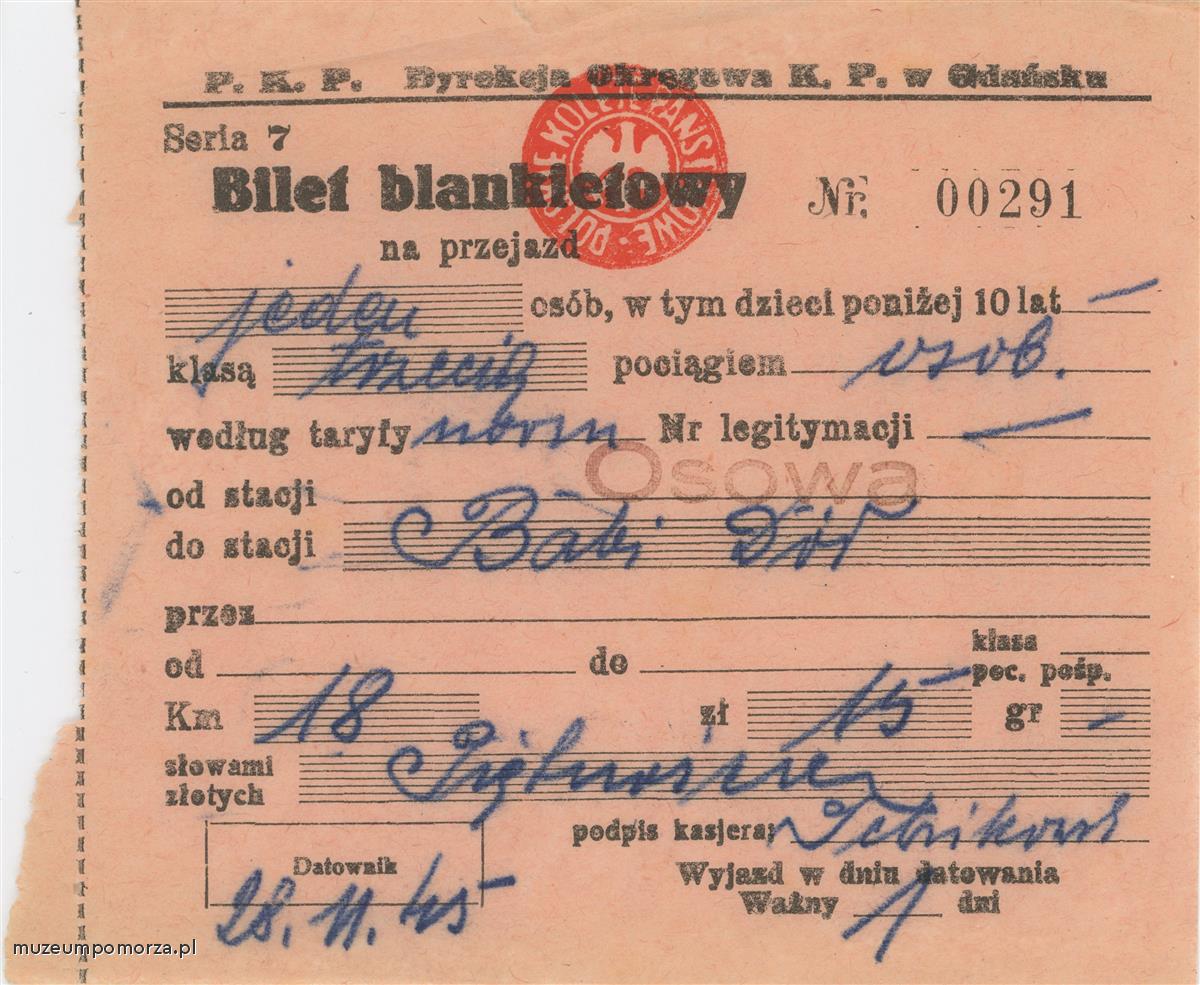 P. K. P. Dyrekcja Okręgowa K. P. w Gdańsku
Seria 7
POLSKIE KOLEJE PAŃSTWOWE
Bilet blankietowy Nr. 00291
na przejazd
jeden osób, w tym dzieci poniżej 10 lat —
klasą trzecią pociągiem osob.
według taryfy norm Nr legitymacji —
od stacji Osowa
do stacji Babi Dół
przez
od do klasa poc. pośp.
Km 18 zł 15 gr -
słowami złotych Piętnaście
podpis kasjera:
Datownik
Wyjazd w dniu datowania
28. 11. 45 Ważny 1 dni
muzeumpomorza.pl